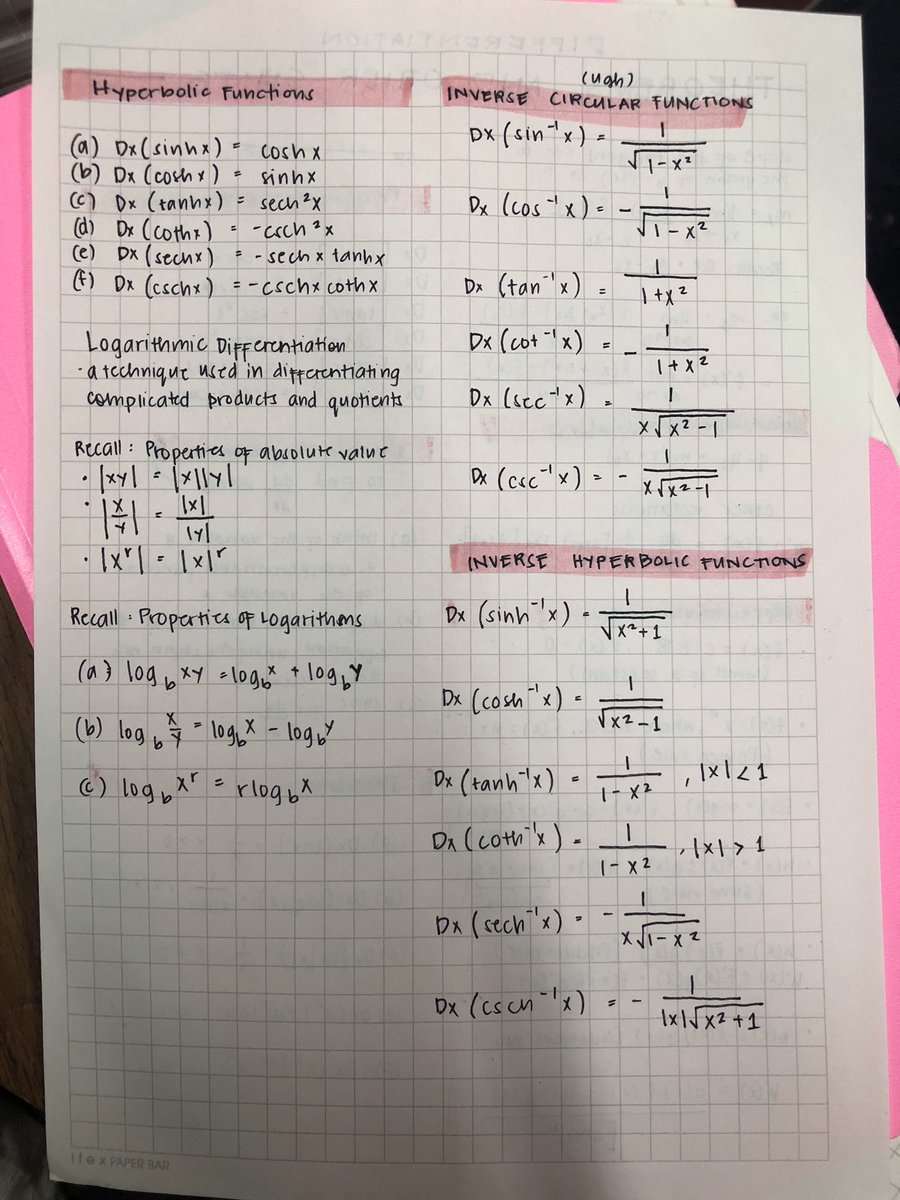 Hyperbolic Functions
(a) Dx(sinhx) = coshx
(b) Dx(coshx) = sinhx
(c) Dx (tanhx) = sech²x
(d) Dx (cothx) = -csch²x
(e) Dx (sechx) = -sechx tanhx
(f) Dx (cschx) = -cschx cothx
Logarithmic Differentiation
- a technique used in differentiating
complicated products and quotients
Recall: Properties of absolute value
• |xy| = |x||y|
• |x/y| = |x|/|y|
• |xʳ| = |x|ʳ
Recall: Properties of Logarithms
(a) log_b xy = log_b x + log_b y
(b) log_b x/y = log_b x - log_b y
(c) log_b xʳ = rlog_b x
(ugh)
INVERSE CIRCULAR FUNCTIONS
Dx (sin⁻¹x) = 1/√(1-x²)
Dx (cos⁻¹x) = - 1/√(1-x²)
Dx (tan⁻¹x) = 1/(1+x²)
Dx (cot⁻¹x) = - 1/(1+x²)
Dx (sec⁻¹x) = 1/(x√(x²-1))
Dx (csc⁻¹x) = - 1/(x√(x²-1))
INVERSE HYPERBOLIC FUNCTIONS
Dx (sinh⁻¹x) = 1/√(x²+1)
Dx (cosh⁻¹x) = 1/√(x²-1)
Dx (tanh⁻¹x) = 1/(1-x²) , |x| < 1
Dx (coth⁻¹x) = 1/(1-x²) , |x| > 1
Dx (sech⁻¹x) = - 1/(x√(1-x²))
Dx (csch⁻¹x) = - 1/(|x|√(x²+1))
PAPER BAR